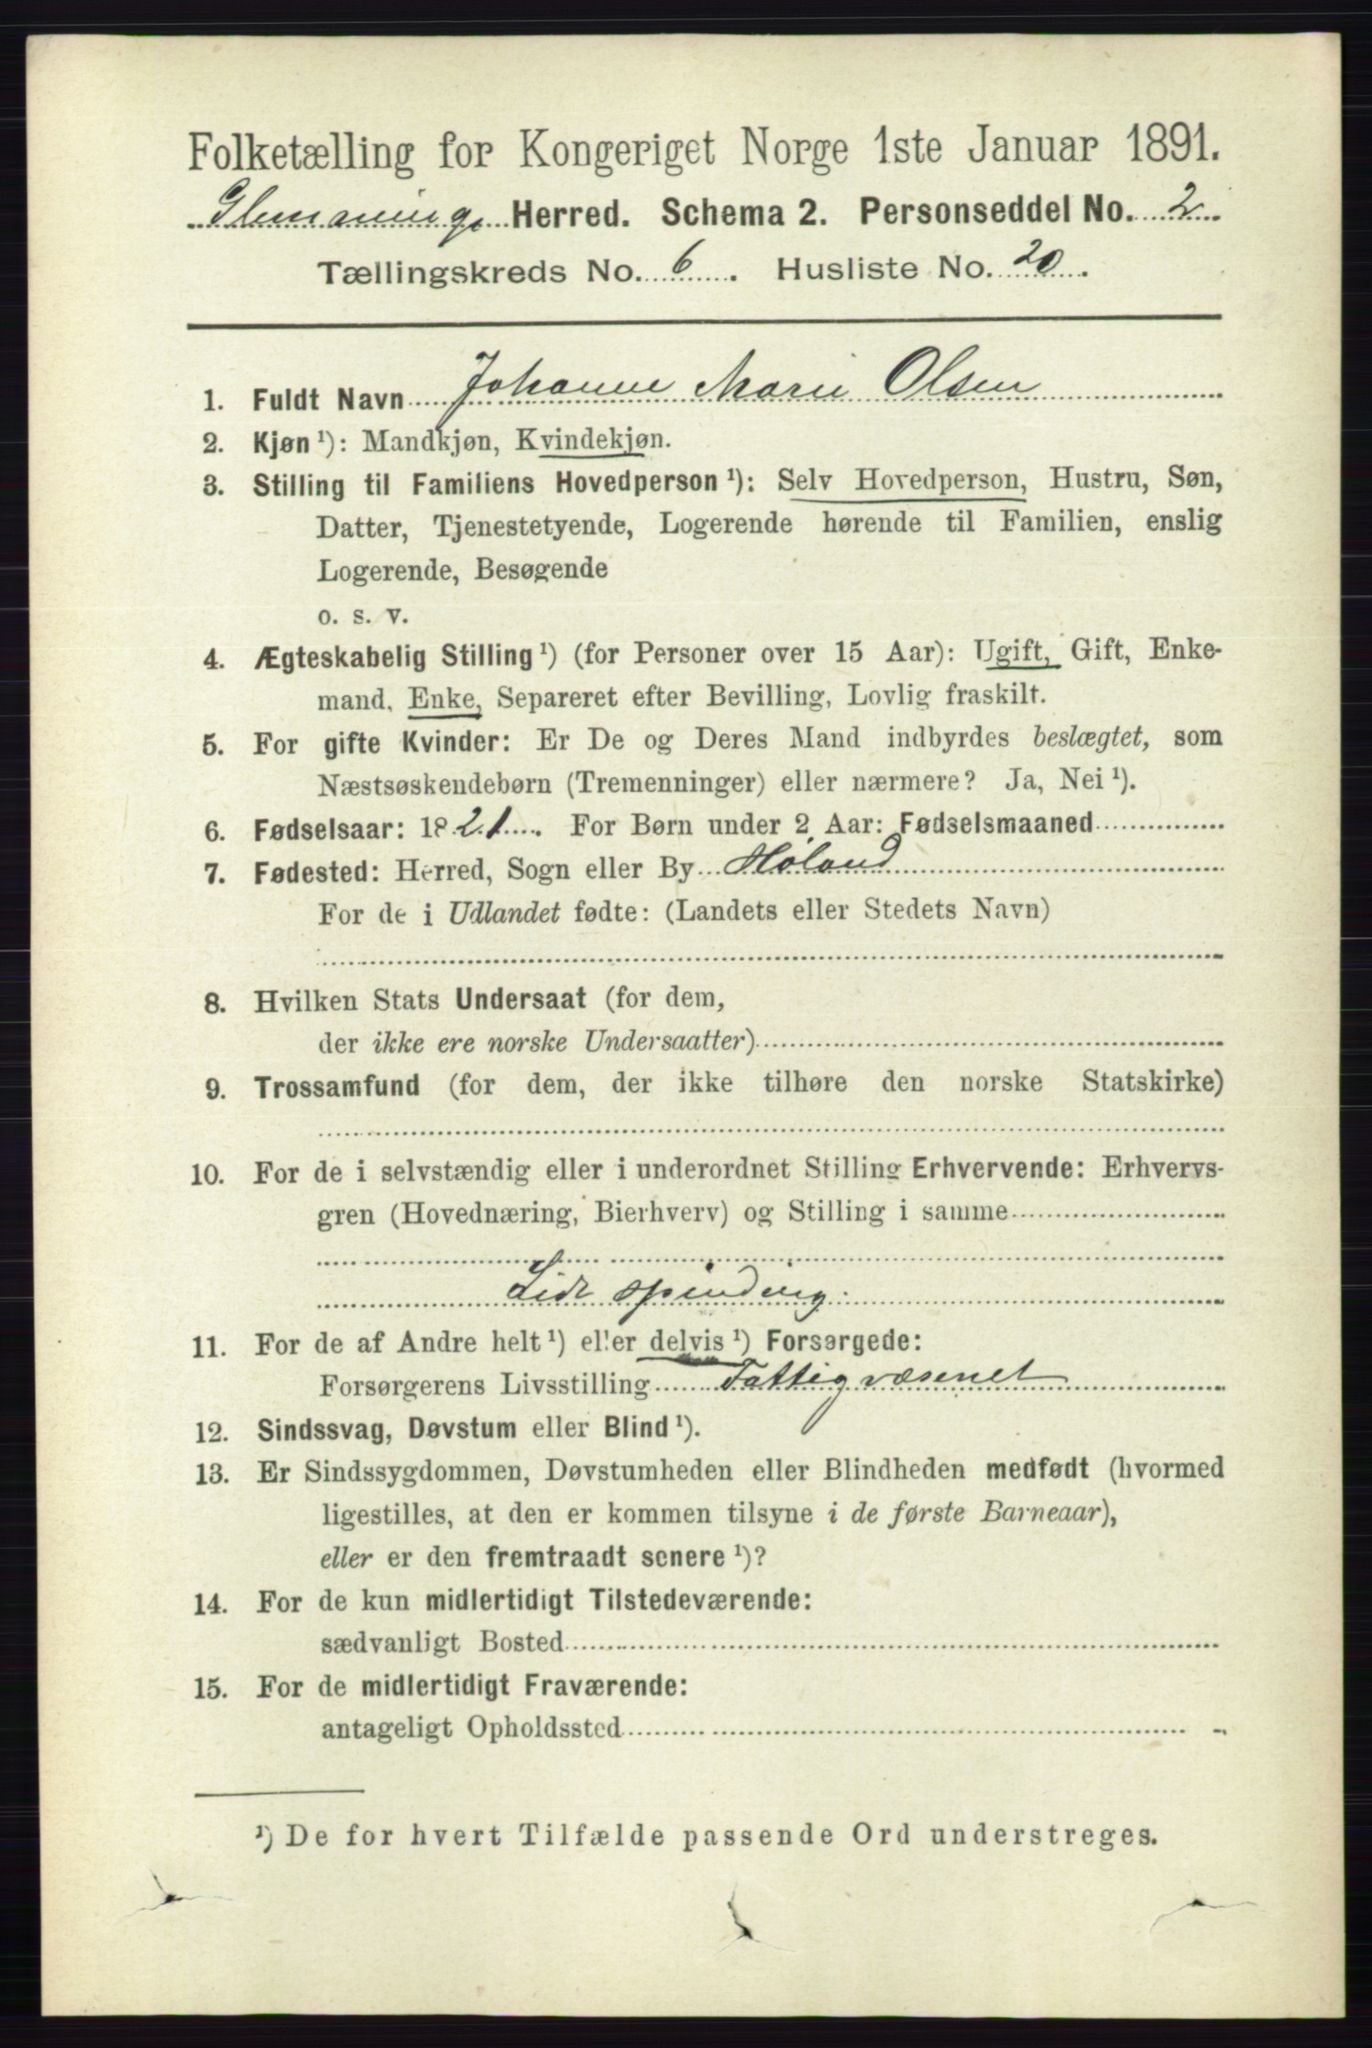 Folketælling for Kongeriget Norge 1ste Januar 1891.
Glemminge Herred. Schema 2. Personseddel No. 2.
Tællingskreds No. 6. Husliste No. 20.
1. Fuldt Navn Johanne Marie Olsen
2. Kjøn ¹): Mandkjøn, Kvindekjøn.
3. Stilling til Familiens Hovedperson ¹): Selv Hovedperson, Hustru, Søn,
Datter, Tjenestetyende, Logerende hørende til Familien, enslig
Logerende, Besøgende
o. s. v.
4. Ægteskabelig Stilling ¹) (for Personer over 15 Aar): Ugift, Gift, Enke-
mand, Enke, Separeret efter Bevilling, Lovlig fraskilt.
5. For gifte Kvinder: Er De og Deres Mand indbyrdes beslægtet, som
Næstsøskendebørn (Tremenninger) eller nærmere? Ja, Nei ¹).
6. Fødselsaar: 1821. For Børn under 2 Aar: Fødselsmaaned
7. Fødested: Herred, Sogn eller By Høland
For de i Udlandet fødte: (Landets eller Stedets Navn)
8. Hvilken Stats Undersaat (for dem,
der ikke ere norske Undersaatter)
9. Trossamfund (for dem, der ikke tilhøre den norske Statskirke)
10. For de i selvstændig eller i underordnet Stilling Erhvervende: Erhvervs-
gren (Hovednæring, Bierhverv) og Stilling i samme
Lidt spinding.
11. For de af Andre helt ¹) eller delvis ¹) Forsørgede:
Forsørgerens Livsstilling Fattigvæsenet
12. Sindssvag, Døvstum eller Blind ¹).
13. Er Sindssygdommen, Døvstumheden eller Blindheden medfødt (hvormed
ligestilles, at den er kommen tilsyne i de første Barneaar),
eller er den fremtraadt senere ¹)?
14. For de kun midlertidigt Tilstedeværende:
sædvanligt Bosted
15. For de midlertidigt Fraværende:
antageligt Opholdssted
¹) De for hvert Tilfælde passende Ord understreges.